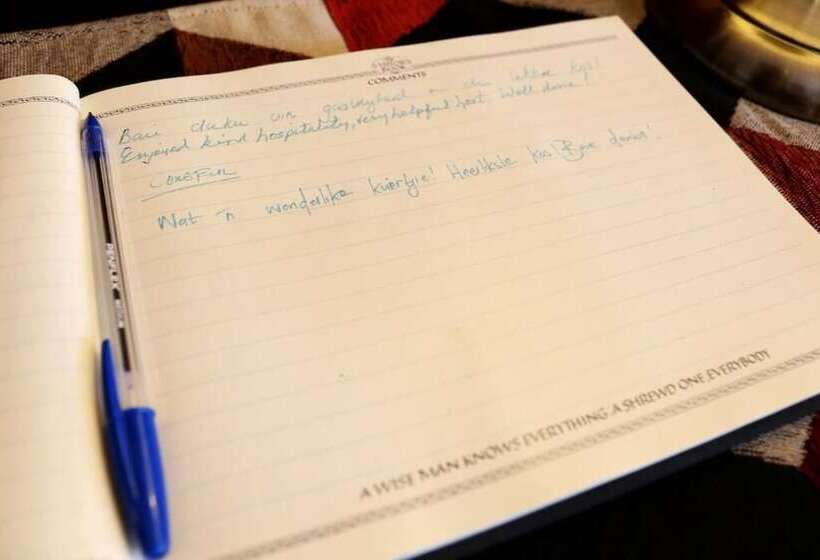 COMMENTS
Baie danku vir gasvryheid en die lekker kos!
Enjoyed kind hospitality, very helpful host. Well done!
Wat 'n wonderlike kuiertjie! Heerlikste kos! Baie dankie!
A WISE MAN KNOWS EVERYTHING A SHREWD ONE, EVERYBODY